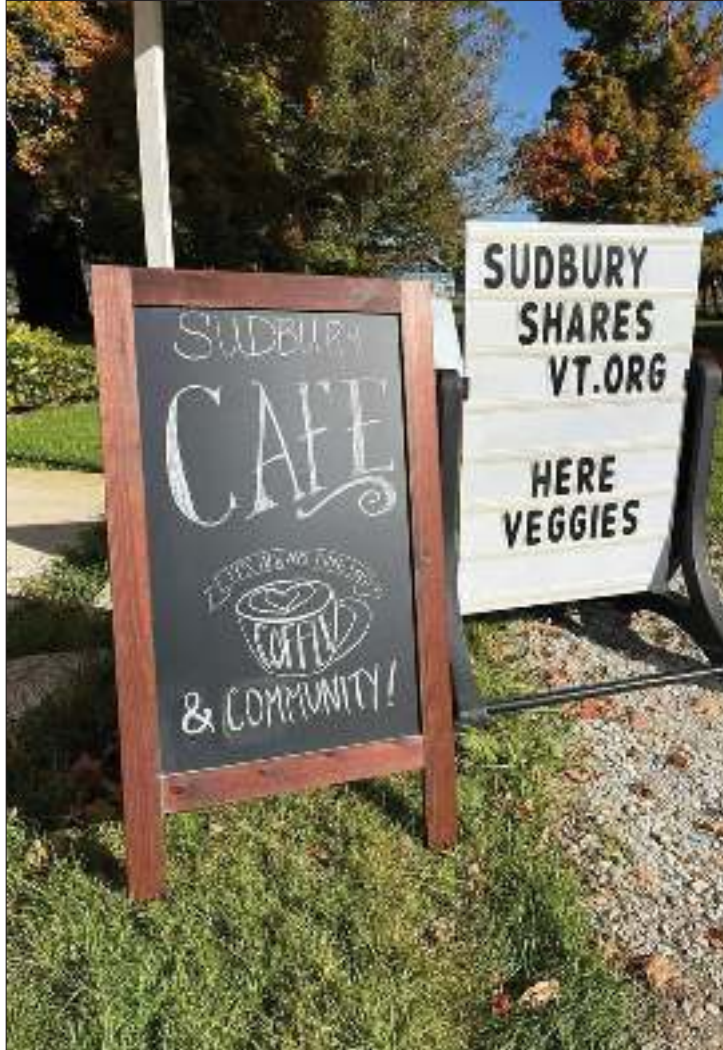 SUDBURY
CAFE
COFFEE
& COMMUNITY!
SUDBURY
SHARES
VT.ORG
HERE
VEGGIES